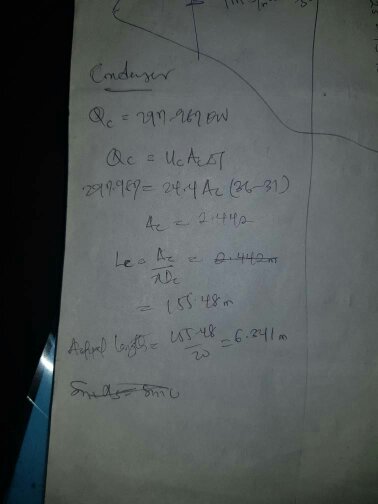 Condenser
Qc = 297.967 kW
Qc = Uc Ac ΔT
297.967 = 24.4 Ac (36-31)
Ac = 2.442
Lc = Ac/πDc = 2.442m
= 155.48 m
Actual length = 155.48/20 = 6.241 m